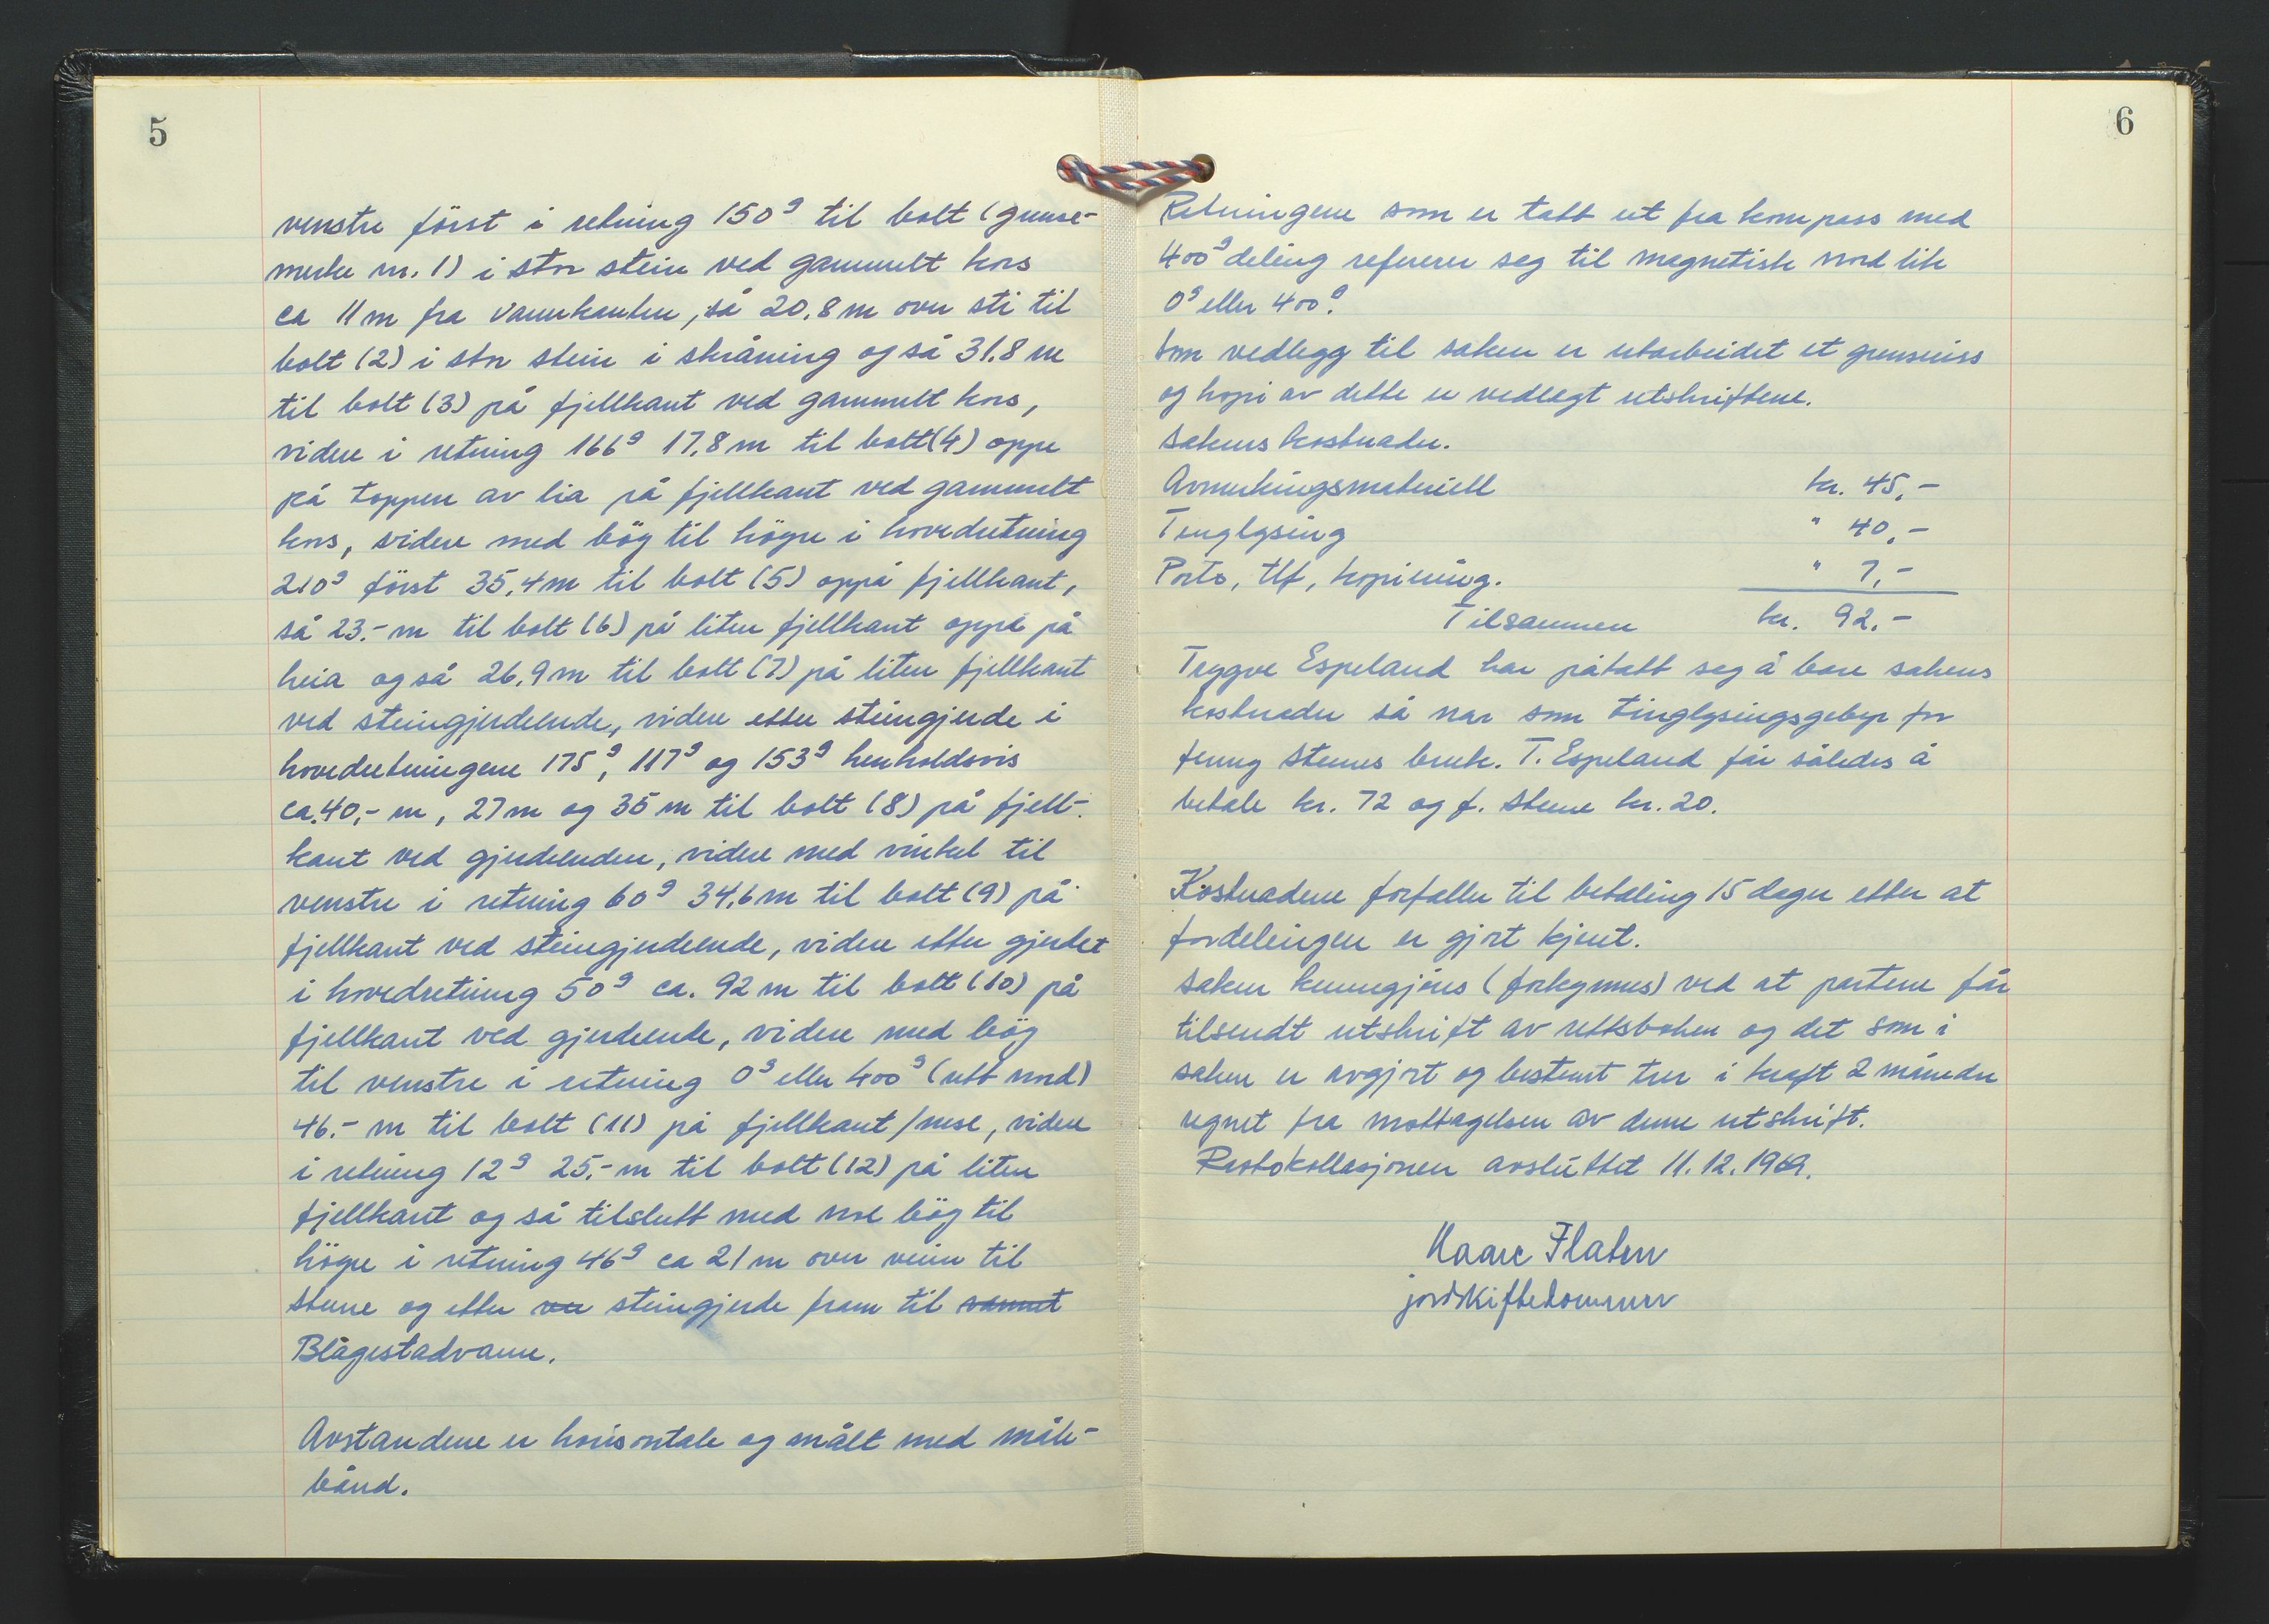 5
venstre först i retning 150g til bolt (grense-
merke nr. 1) i stor stein ved gammelt kors
ca 11 m fra vannkanten, så 20,8 m over sti til
bolt (2) i stor stein i skråning og så 31,8 m
til bolt (3) på fjellkant ved gammelt kors,
videre i retning 166g 17,8 m til bolt (4) oppe
på toppen av lia på fjellkant ved gammelt
kors, videre med bög til högre i hovedretning
210g först 35,4 m til bolt (5) oppå fjellkant,
så 23.- m til bolt (6) på liten fjellkant oppå på
heia og så 26,9 m til bolt (7) på liten fjellkant
ved steingjerdeende, videre etter steingjerde i
hovedretningene 175g, 117g og 153g henholdsvis
ca. 40,- m, 27 m og 35 m til bolt (8) på fjell-
kant ved gjerdeenden, videre med vinkel til
venstre i retning 60g 34,6 m til bolt (9) på
fjellkant ved steingjerdeende, videre etter gjerdet
i hovedretning 50g ca. 92 m til bolt (10) på
fjellkant ved gjerdeende, videre med bög
til venstre i retning 0g eller 400g (rett nord)
46.- m til bolt (11) på fjellkant/nese, videre
i retning 12g 25.- m til bolt (12) på liten
fjellkant og så tilslutt med noe bög til
högre i retning 46g ca 21 m over veien til
Stene og etter ve steingjerde fram til vannet
Blågestadvann.
Avstandene er horisontale og målt med måle-
bånd.
6
Retningene som er tatt ut fra kompass med
400g deling referer seg til magnetisk nord lik
0g eller 400g.
Som vedlegg til saken er utarbeidet et grenseriss
og kopi av dette er vedlagt utskriftene.
Sakens kostnader.
Avmerkingsmateriell kr. 45,-
Tinglysing " 40,-
Porto, tlf, kopiering. " 7,-
Tilsammen kr. 92.-
Trygve Espeland har påtatt seg å bære sakens
kostnader så nær som tinglysingsgebyr for
Stenes bruk. T. Espeland får således å
betale kr. 72 og f. Stene kr. 20.
Kostnadene forfaller til betaling 15 dager etter at
fordelingen er gjort kjent.
Saken kunngjöres (forkynnes) ved at partene får
tilsendt utskrift av rettsboken og det som i
saken er avgjort og bestemt trer i kraft 2 måneder
regnet fra mottagelsen av denne utskrift.
Protokollasjonen avsluttet 11.12.1969.
Kaare Flaten
jordskiftedommer